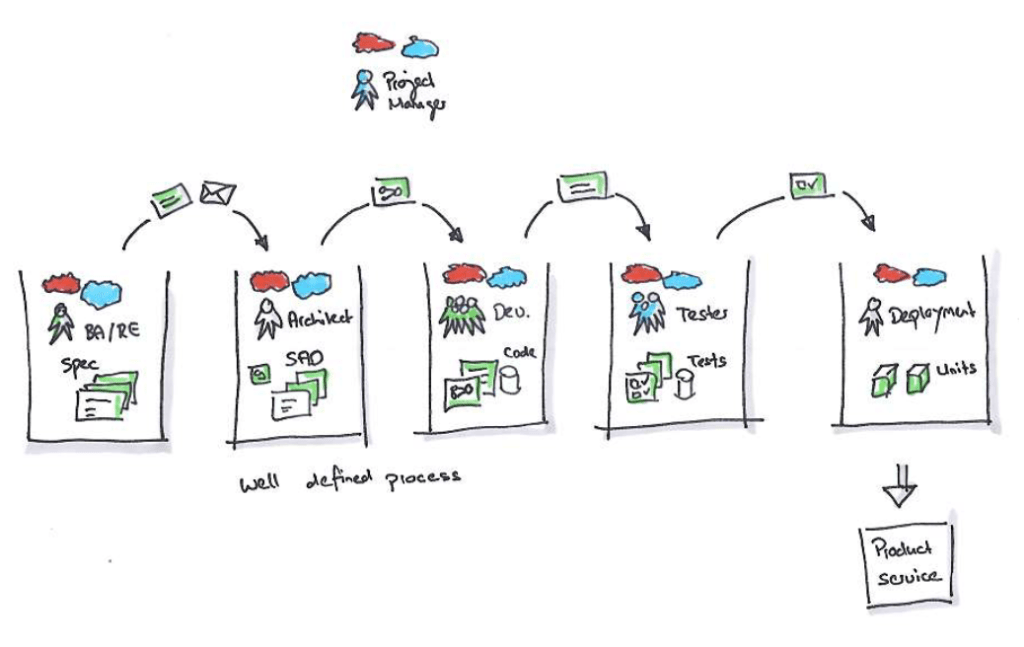 Project
Manager
BA/RE
Spec
Architect
SAD
Dev.
Code
Tester
Tests
Deployment
Units
Well defined process
Product
service